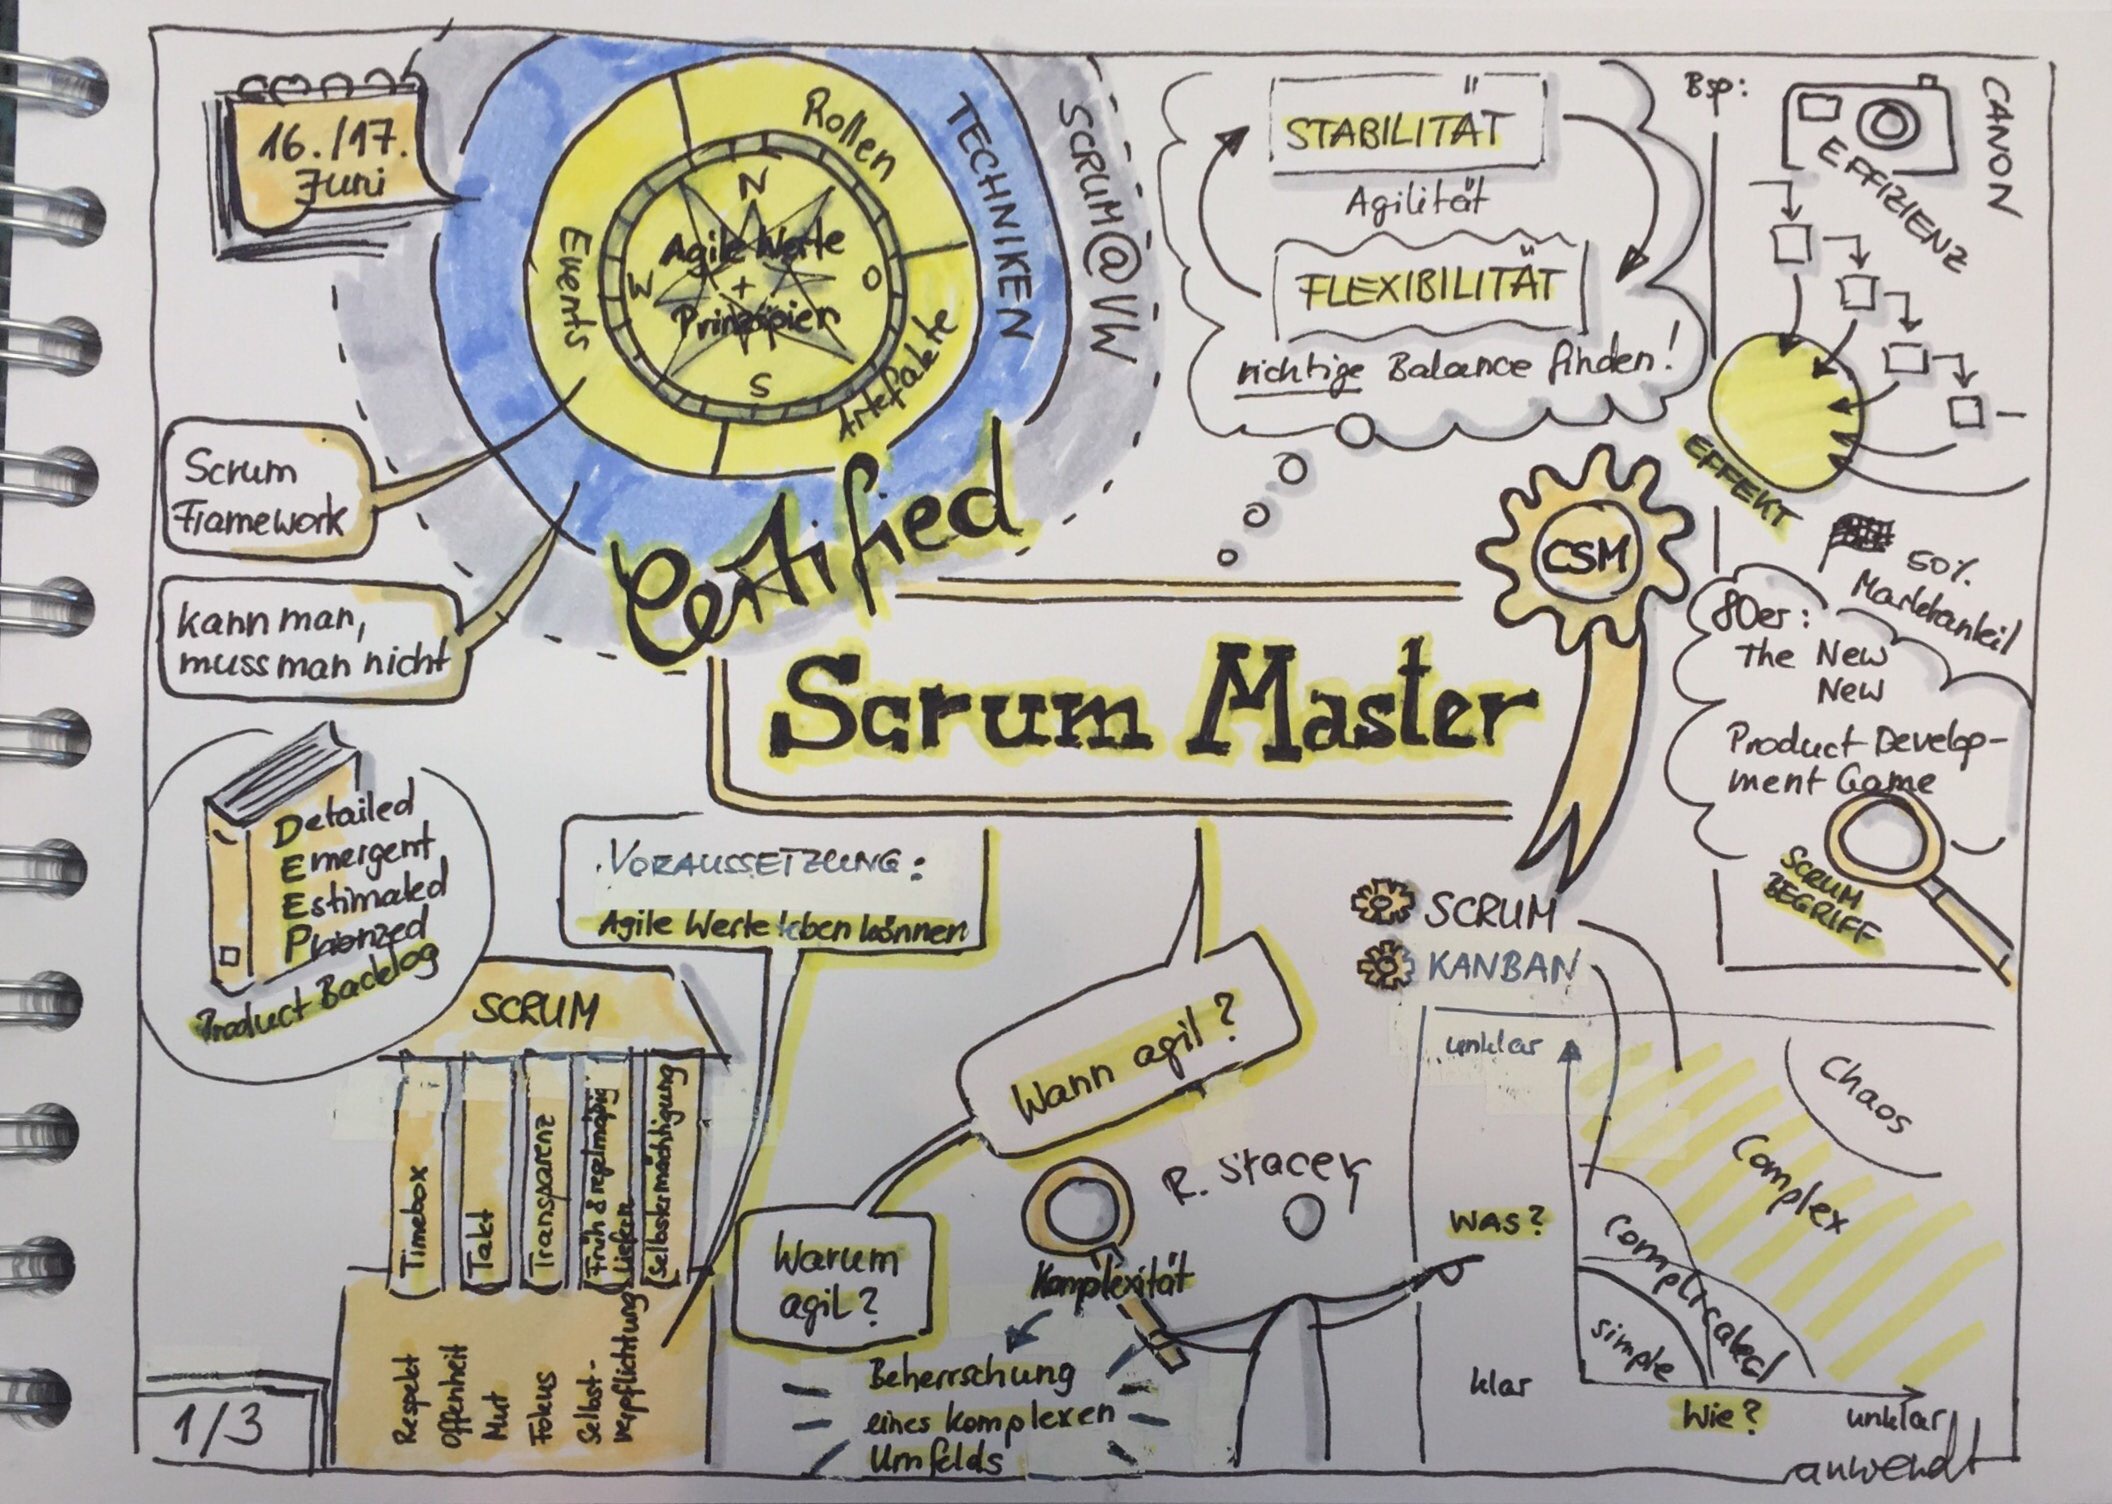 16./17.
Juni
Rollen
TECHNIKEN
SCRUM@VW
Events
Artefakte
N
O
S
W
Agile Werte
+
Prinzipien
Scrum
Framework
kann man,
muss man nicht
STABILITÄT
Agilität
FLEXIBILITÄT
richtige Balance finden!
Bsp:
CANON
EFFIZIENZ
EFFEKT
50%
Marktanteil
80er:
The New
New
Product Develop-
ment Game
SCRUM
BEGRIFF
Certified
Scrum Master
CSM
Detailed
Emergent
Estimated
Priorized
Product Backlog
VORAUSSETZUNG:
Agile Werte leben können
SCRUM
Timebox
Takt
Transparenz
Früh & regelmäßig
Liefern
Selbstermächtigung
Respekt
Offenheit
Mut
Fokus
Selbst-
verpflichtung
Wann agil?
Warum
agil?
R. Stacey
Komplexität
Beherrschung
eines komplexen
Umfelds
SCRUM
KANBAN
unklar
WAS?
klar
Chaos
Complex
Complicated
simple
Wie?
unklar
anwendt
1/3